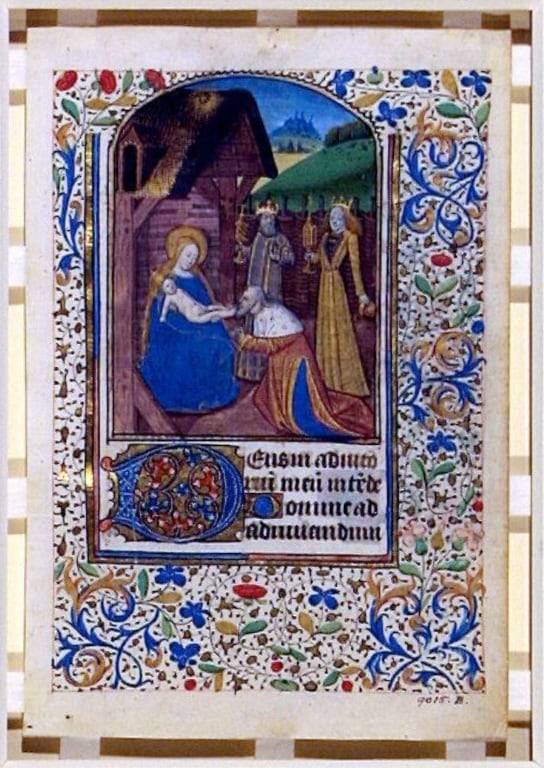 Deus in adiuto
riū meū intēde
Domine ad
adiuuandum
9015. B.